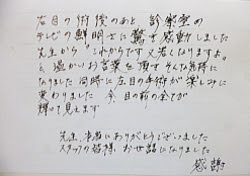 右目の術後のあと 診察室の
テレビの鮮明さに驚き感動しました
先生から これからです 又若くなりますよ。
と 温かいお言葉を頂き そんな気持に
なりました 同時に左目の手術が楽しみに
変わりました 今 目の前の全てが
輝って見えます
先生、本当にありがとうございました
スタッフの皆様 お世話になりました
感謝